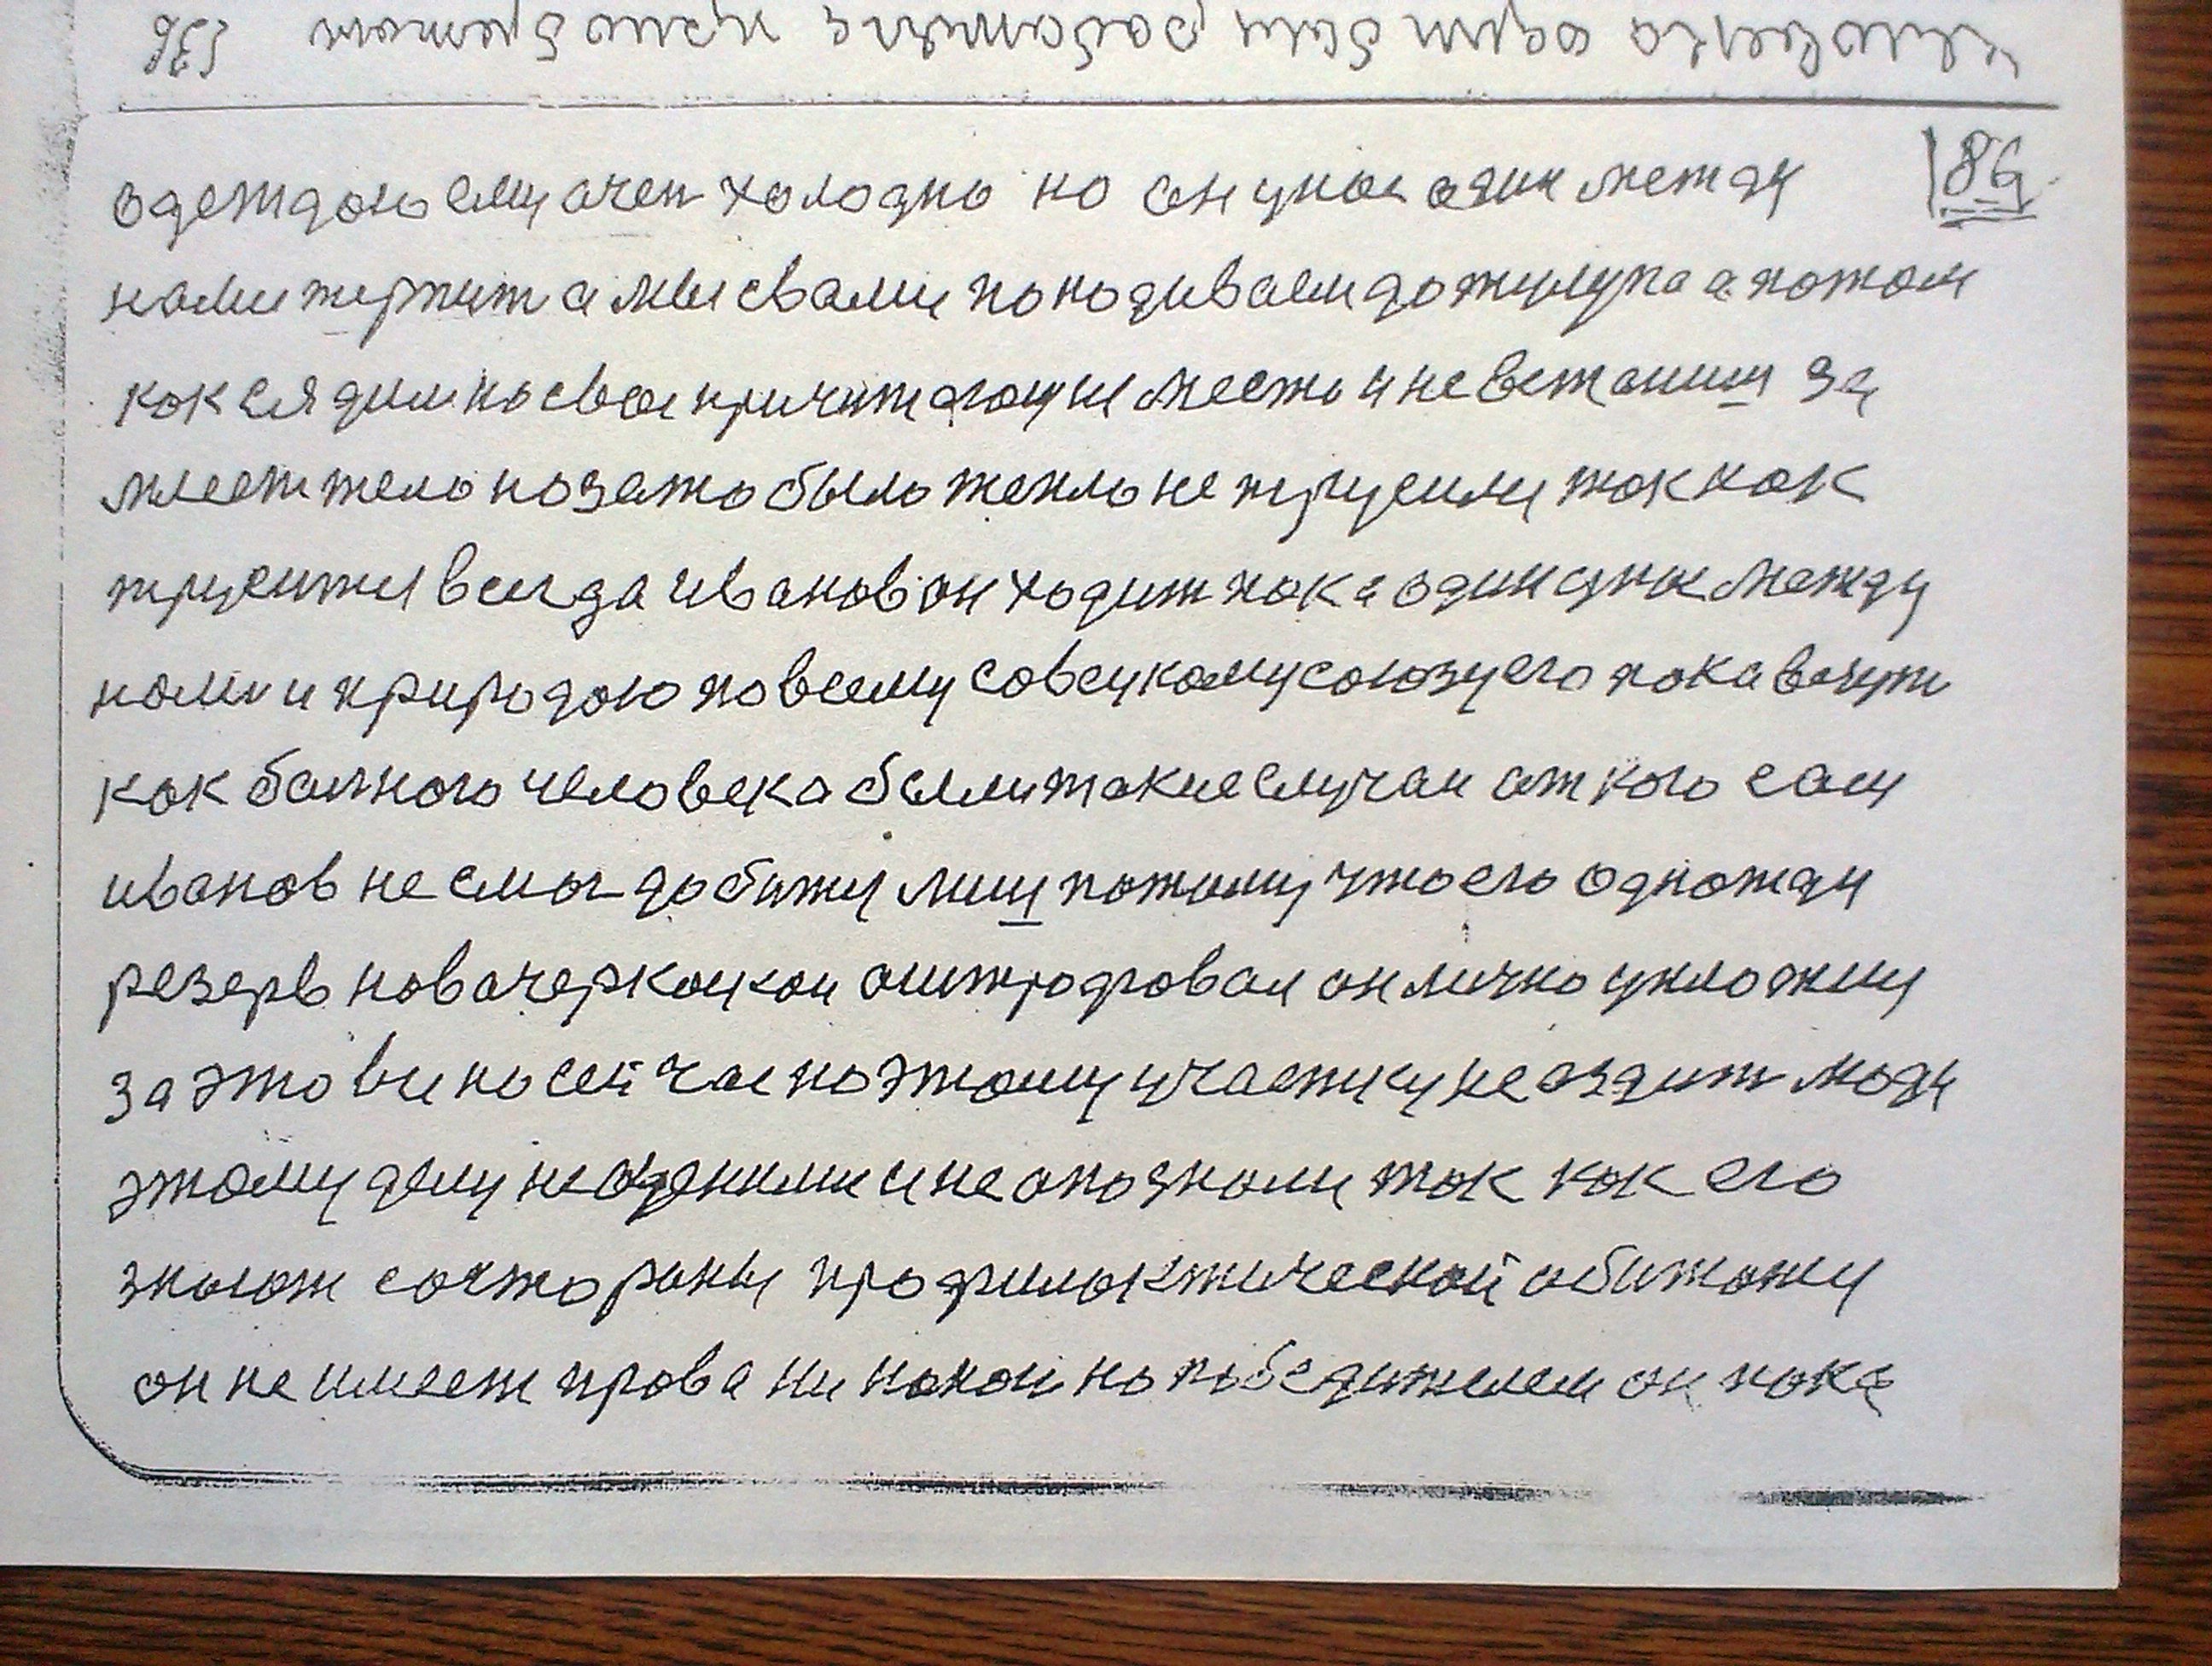 186
одеждою ему очен холодно но он у нас один между
нами терпит а мы свами понодиваем до тулупа а потом
как сядим на свое причитающие место и не встаниш за
мест тело но зато было тепло не трусили так как
трусится всегда иванов он ходит пока один у нас между
нами и природою по всему совецкому союзу его пока
как балного человека были такие случаи от кого сам
иванов не смог добится лиш потому что его одножди
резерв новочеркоцкои оштрофовал он лично
за это ви но сей час по этому участку не ездит
этому делу не оценили и не опознали так как его
знают состораны профилактической
он не имеет права ни какои но победителем он пока